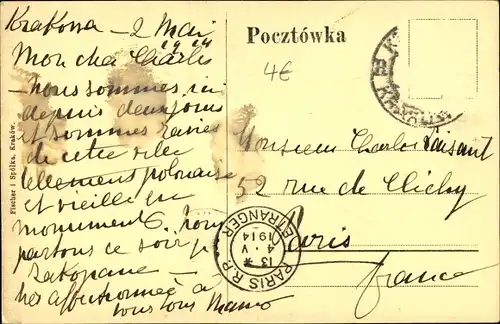 Krakowa – 2 Mai
1914
Mon cha Charles
– nous sommes ici
depuis deux jours
et sommes ravies
de cette ville
tellement polonaise
et vieille en
monuments. nous
partons ce soir p
Zakopane –
à
tous tous Mamo
Pocztówka
4€
Monsieur Charles Laisant
52 rue de Clichy
Paris
France
PARIS R.P. ETRANGER
13 *
4 · V
1914
Fischer i Spółka, Kraków.